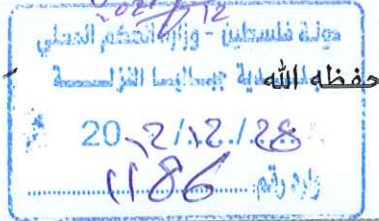 دولة فلسطين - وزارة الحكم المحلي
بلدية جباليا النزلة
حفظه الله
2022/12/28
وارد رقم 1186